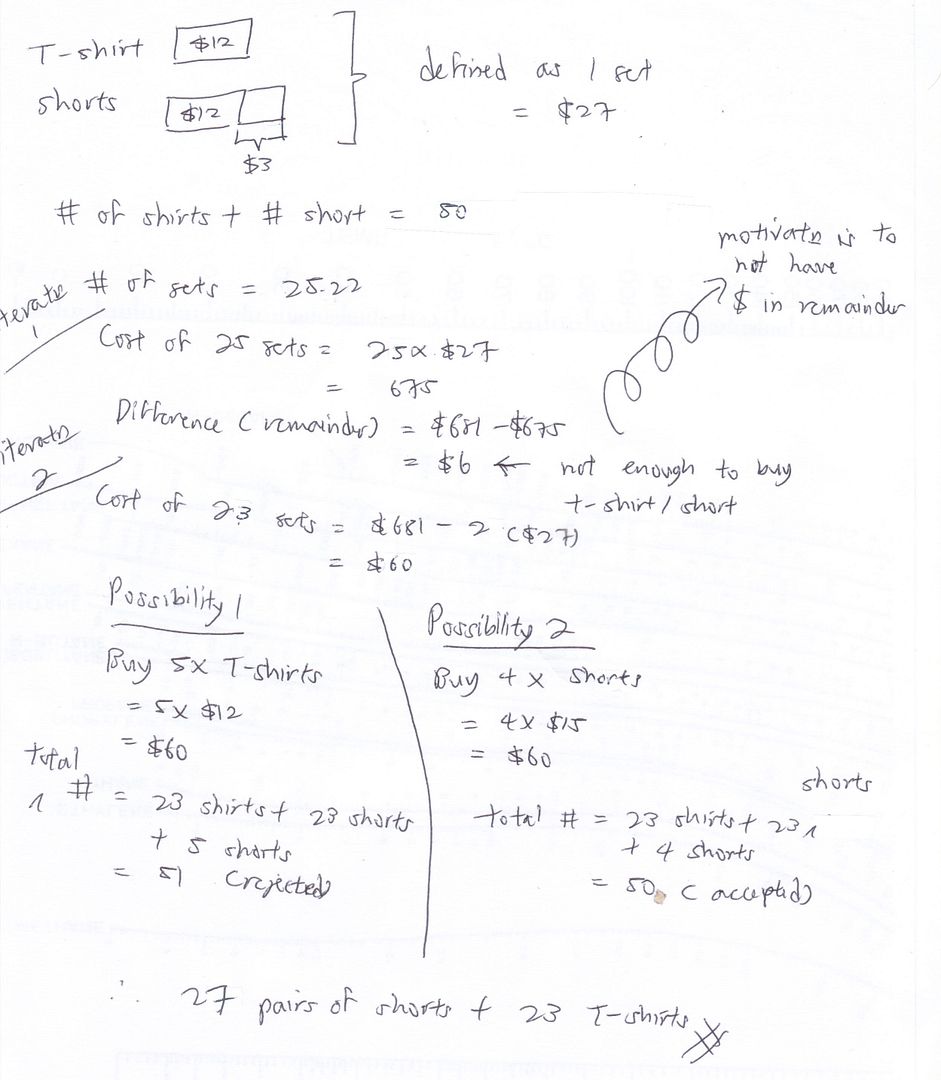 T-shirt $12
shorts $12
$3
defined as 1 set
= $27
# of shirts + # short = 50
motivatn is to
not have
$ in remainder
iterate
1
# of sets = 25.22
Cost of 25 sets = 25 x $27
= 675
Difference (remainder) = $681 - $675
= $6 ← not enough to buy
t-shirt / short
iteratn
2
Cost of 23 sets = $681 - 2 ($27)
= $60
Possibility 1
Buy 5x T-shirts
= 5 x $12
= $60
total
# = 23 shirts + 23 shorts
+ 5 shorts
= 51 (rejected)
Possibility 2
Buy 4 x shorts
= 4 x $15
= $60
shorts
total # = 23 shirts + 23
+ 4 shorts
= 50 (accepted)
∴ 27 pairs of shorts + 23 T-shirts